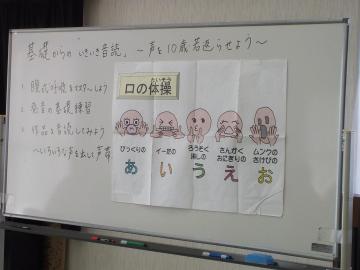 基礎からの「いきいき音読」 ～声を10歳若返らせよう～
1. 腹式呼吸をマスターしよう
2. 発音の基礎練習
3. 作品を音読してみよう
～いろいろな声を出して声帯
たいそう
口の体操
びっくりの
あ
イーだの
い
ろうそく
消しの
う
さんかく
おにぎりの
え
ムンクの
さけびの
お